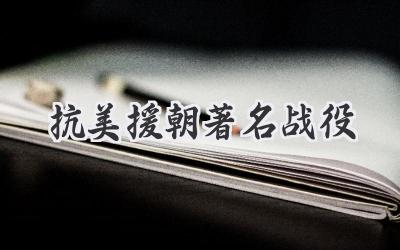 抗美援朝著名战役